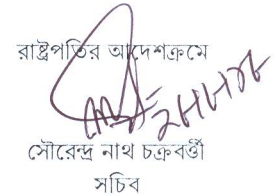 রাষ্ট্রপতির আদেশক্রমে
সৌরেন্দ্র নাথ চক্রবর্ত্তী
সচিব